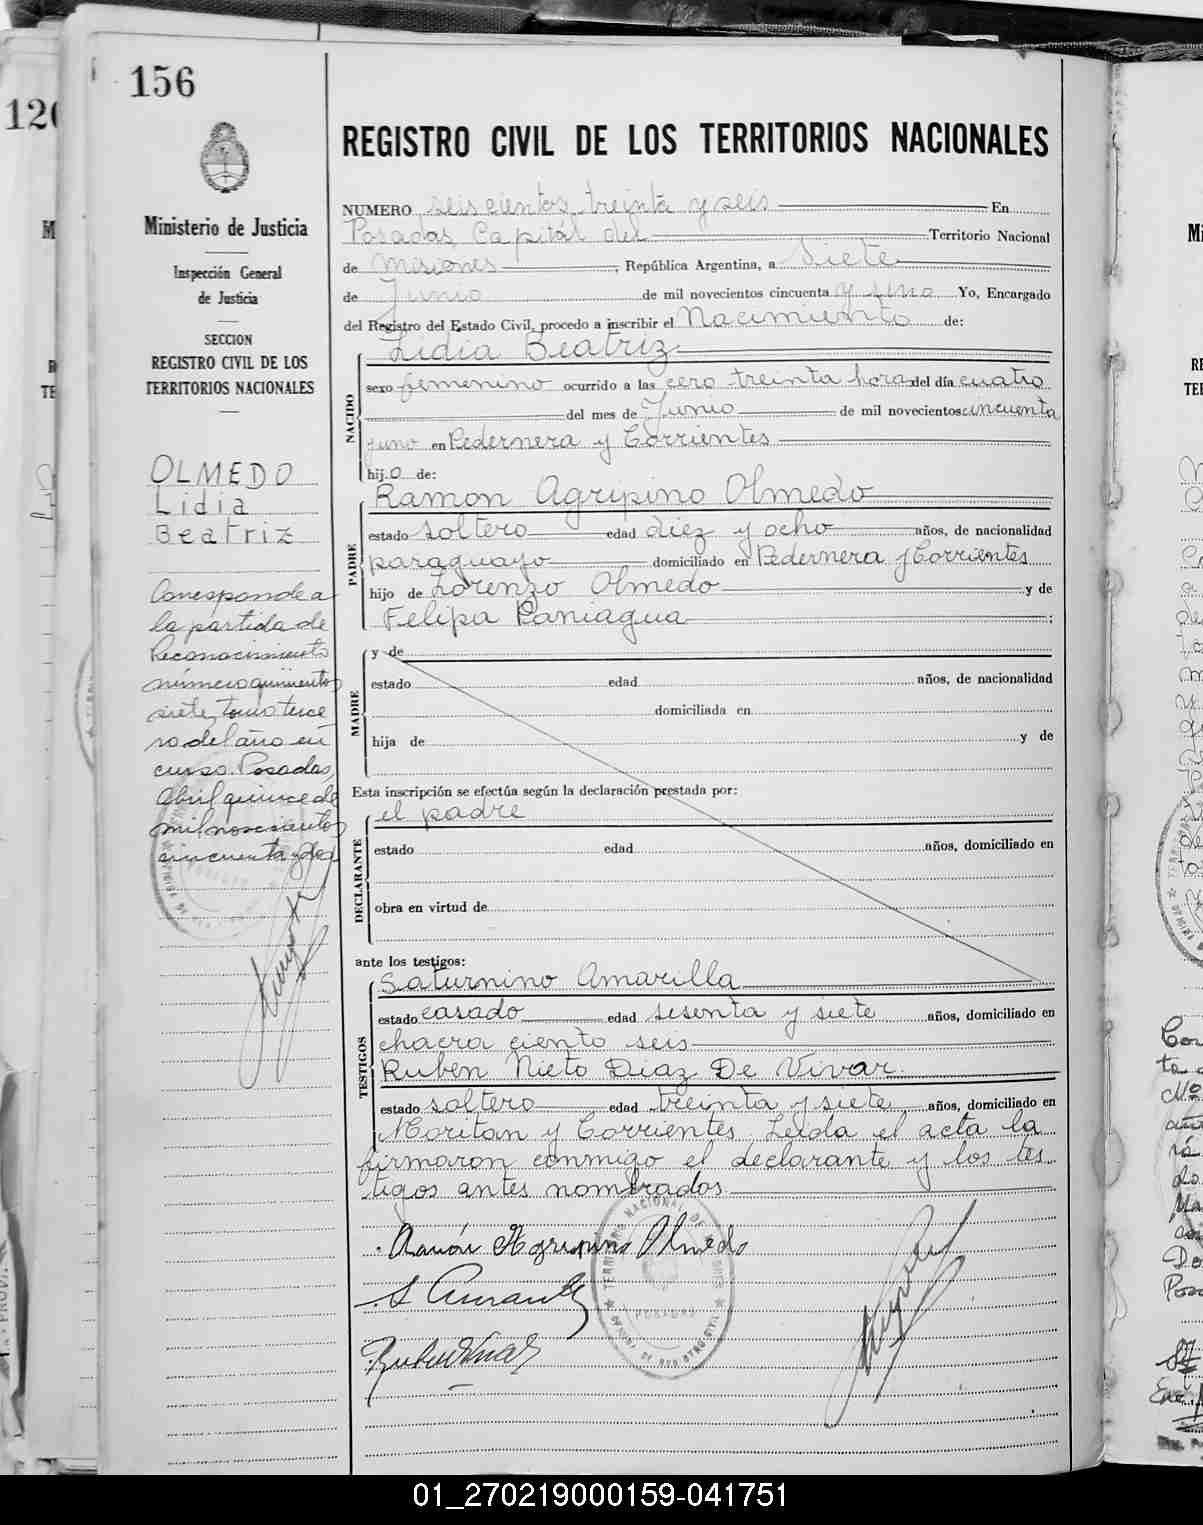 156
120
Ministerio de Justicia
Inspección General
de Justicia
SECCION
REGISTRO CIVIL DE LOS
TERRITORIOS NACIONALES
OLMEDO
Lidia
Beatriz
Corresponde a
la partida de
Reconocimiento
número quinientos
siete, tomo terce
ro del año en
curso. Posadas,
Abril quince de
mil novecientos
cincuenta y dos
REGISTRO CIVIL DE LOS TERRITORIOS NACIONALES
NUMERO seiscientos treinta y seis En
Posadas Capital del Territorio Nacional
de Misiones, República Argentina, a Siete
de Junio de mil novecientos cincuenta y uno Yo, Encargado
del Registro del Estado Civil, procedo a inscribir el Nacimiento de:
NACIDO
Lidia Beatriz
sexo femenino ocurrido a las cero treinta hora del día cuatro
del mes de Junio de mil novecientos cincuenta
y uno en Pedernera y Corrientes
hij.o de:
PADRE
Ramon Agripino Olmedo
estado soltero edad diez y ocho años, de nacionalidad
paraguayo domiciliado en Pedernera y Corrientes
hijo de Lorenzo Olmedo y de
Felipa Paniagua ;
MADRE
y de
estado edad años, de nacionalidad
domiciliada en
hija de y de
Esta inscripción se efectúa según la declaración prestada por:
DECLARANTE
el padre
estado edad años, domiciliado en
obra en virtud de
ante los testigos:
TESTIGOS
Saturnino Amarilla
estado casado edad sesenta y siete años, domiciliado en
chacra ciento seis
Ruben Nieto Diaz De Vivar
estado soltero edad treinta y siete años, domiciliado en
Moritan y Corrientes. Leida el acta la
firmaron conmigo el declarante y los tes
tigos antes nombrados
Ramón Agripino Olmedo
POSADAS
01_270219000159-041751